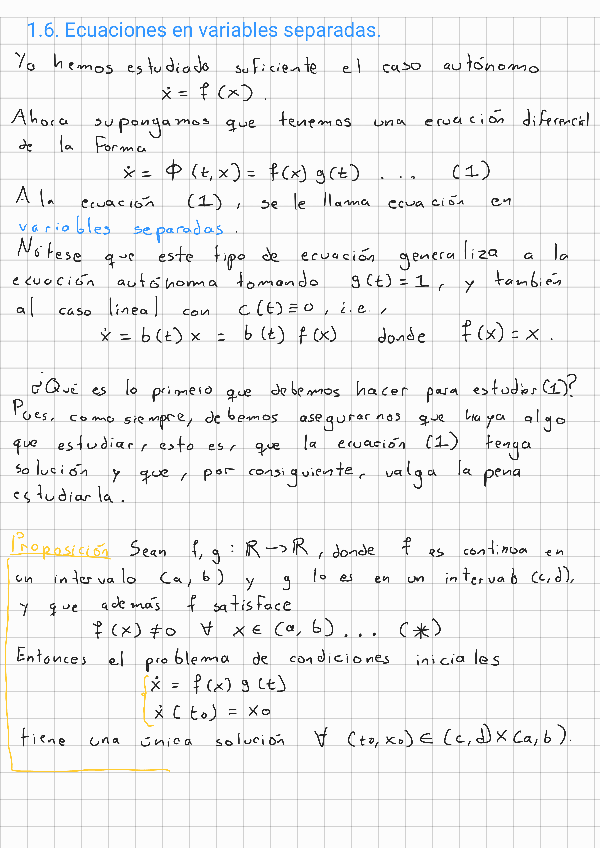 1.6. Ecuaciones en variables separadas.
Ya hemos estudiado suficiente el caso autónomo
ẋ = f(x).
Ahora supongamos que tenemos una ecuación diferencial
de la forma
ẋ = Φ(t,x) = f(x) g(t) ... (1)
A la ecuación (1), se le llama ecuación en
variables separadas.
Nótese que este tipo de ecuación generaliza a la
ecuación autónoma tomando g(t) = 1, y también
al caso lineal con c(t) ≡ 0, i.e.,
ẋ = b(t) x = b(t) f(x) donde f(x) = x.
¿Qué es lo primero que debemos hacer para estudiar (1)?
Pues, como siempre, debemos asegurarnos que haya algo
que estudiar, esto es, que la ecuación (1) tenga
solución y que, por consiguiente, valga la pena
estudiarla.
Proposición Sean f, g : ℝ → ℝ, donde f es continua en
un intervalo (a, b) y g lo es en un intervalo (c, d),
y que además f satisface
f(x) ≠ 0 ∀ x ∈ (a, b) ... (*)
Entonces el problema de condiciones iniciales
ẋ = f(x) g(t)
ẋ(t₀) = x₀
tiene una única solución ∀ (t₀, x₀) ∈ (c, d) × (a, b).